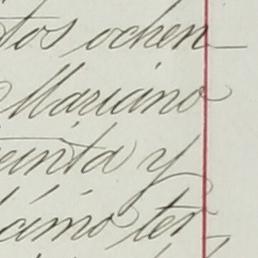 tos ochen
Mariano
einta y
cimo ter